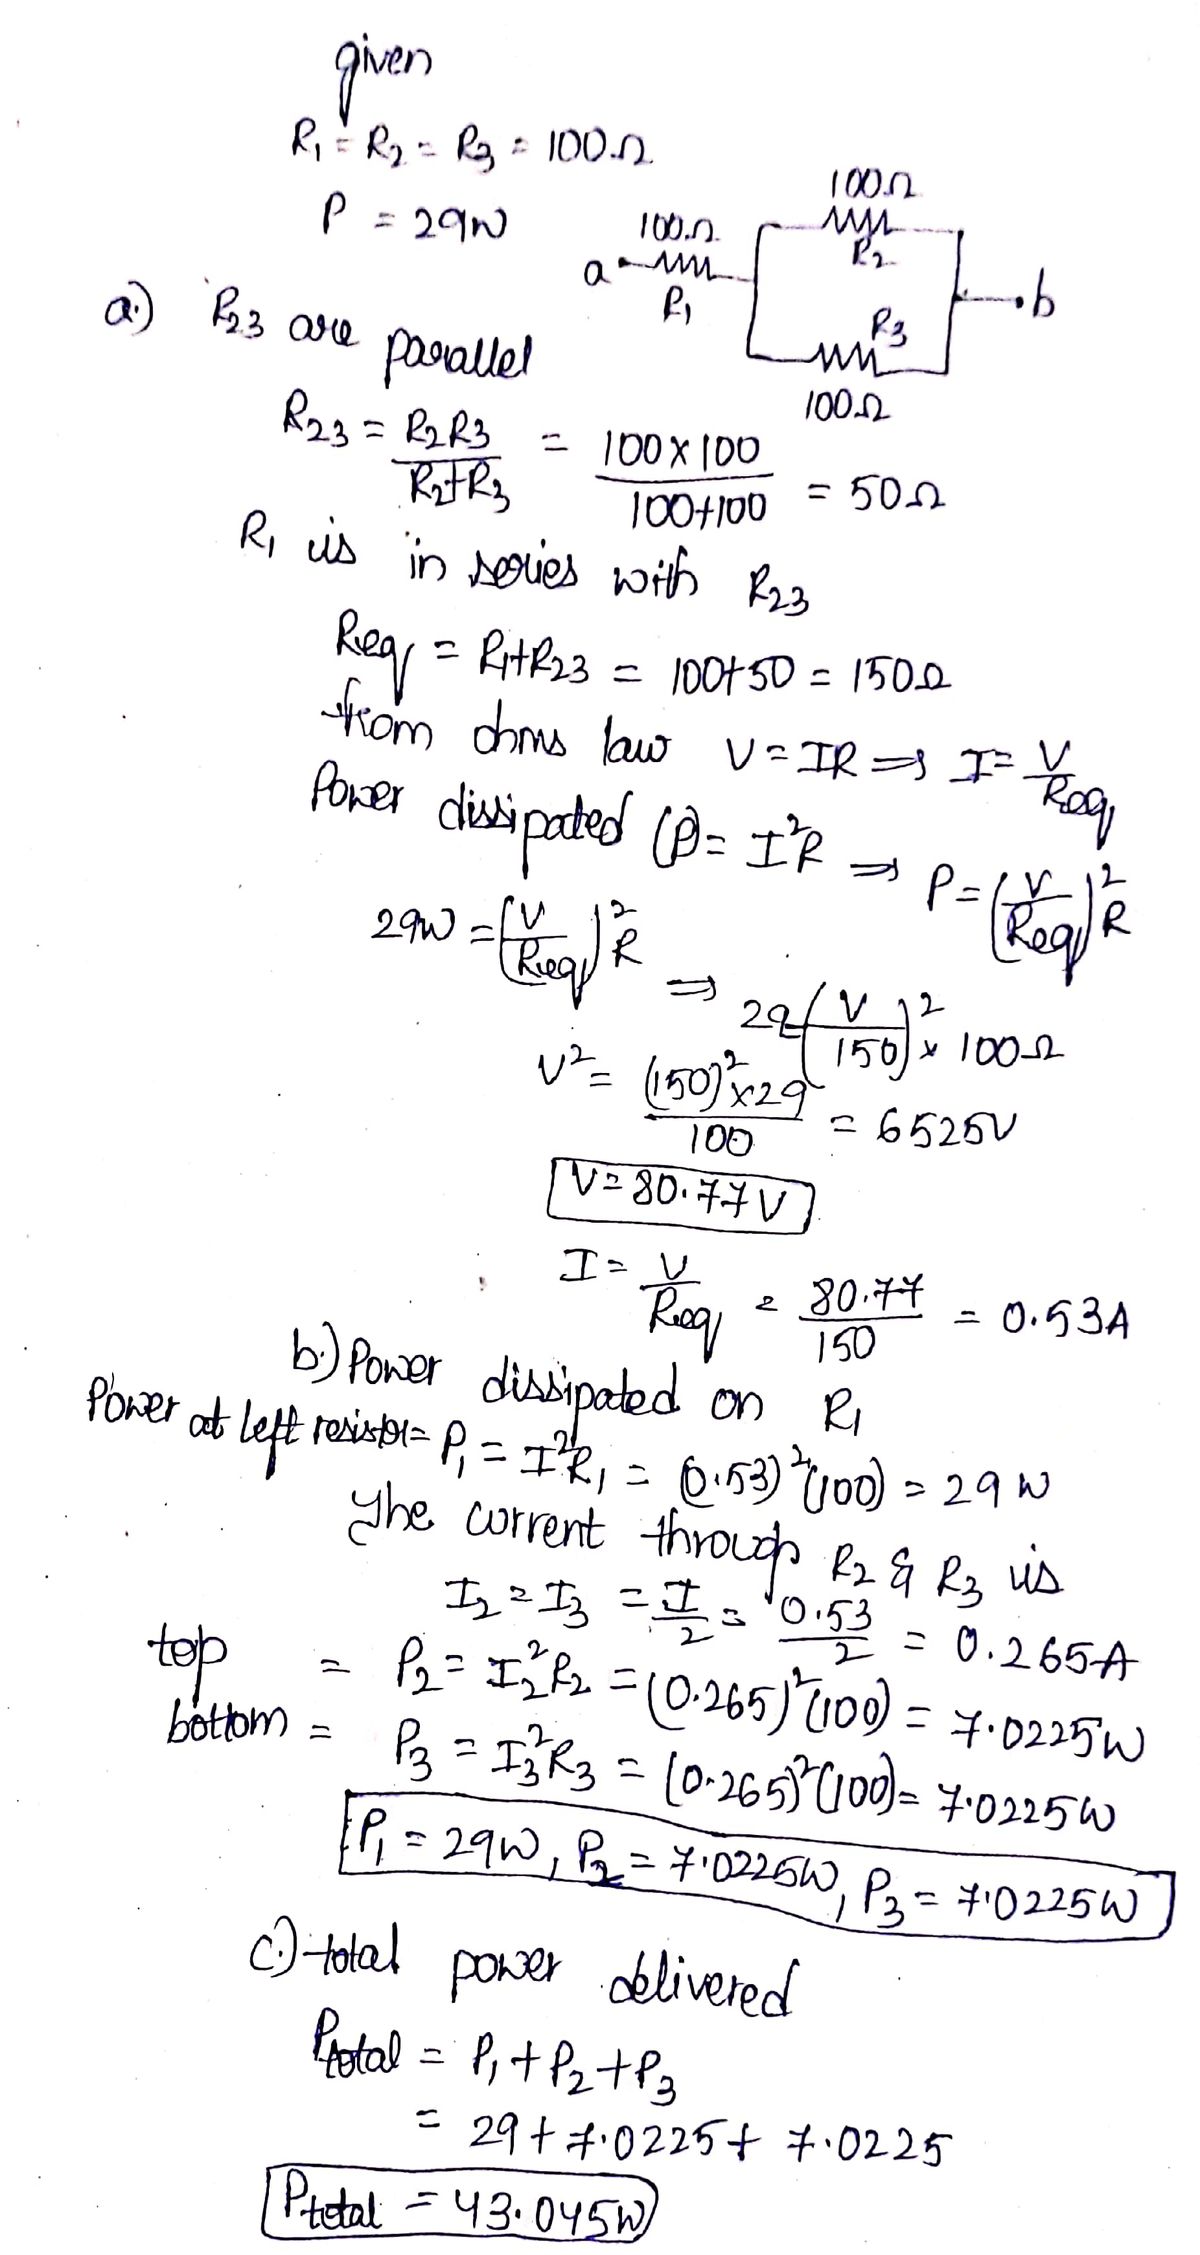 given
R₁ = R₂ = R₃ = 100Ω
P = 29W
100Ω
100Ω
R₂
a
R₁
b
R₃
100Ω
a.) R₂₃ are parallel
R₂₃ = R₂R₃ / R₂+R₃ = 100 x 100 / 100+100 = 50Ω
R₁ is in series with R₂₃
Req = R₁+R₂₃ = 100+50 = 150Ω
from ohms law V = IR ⇒ I = V / Req
Power dissipated (P) = I²R ⇒ P = (V / Req)² R
29W = (V / Req)² R ⇒ 29 (V / 150)² x 100Ω
V² = (150)² x 29 / 100 = 6525V
V = 80.77V
I = V / Req = 80.77 / 150 = 0.53A
b.) Power dissipated on R₁
Power at left resistor = P₁ = I²R₁ = (0.53)²(100) = 29W
The current through R₂ & R₃ is
I₂ = I₃ = I / 2 = 0.53 / 2 = 0.265A
top = P₂ = I₂²R₂ = (0.265)²(100) = 7.0225W
bottom = P₃ = I₃²R₃ = (0.265)²(100) = 7.0225W
P₁ = 29W, P₂ = 7.0225W, P₃ = 7.0225W
c.) total power delivered
Ptotal = P₁ + P₂ + P₃
= 29 + 7.0225 + 7.0225
Ptotal = 43.045W